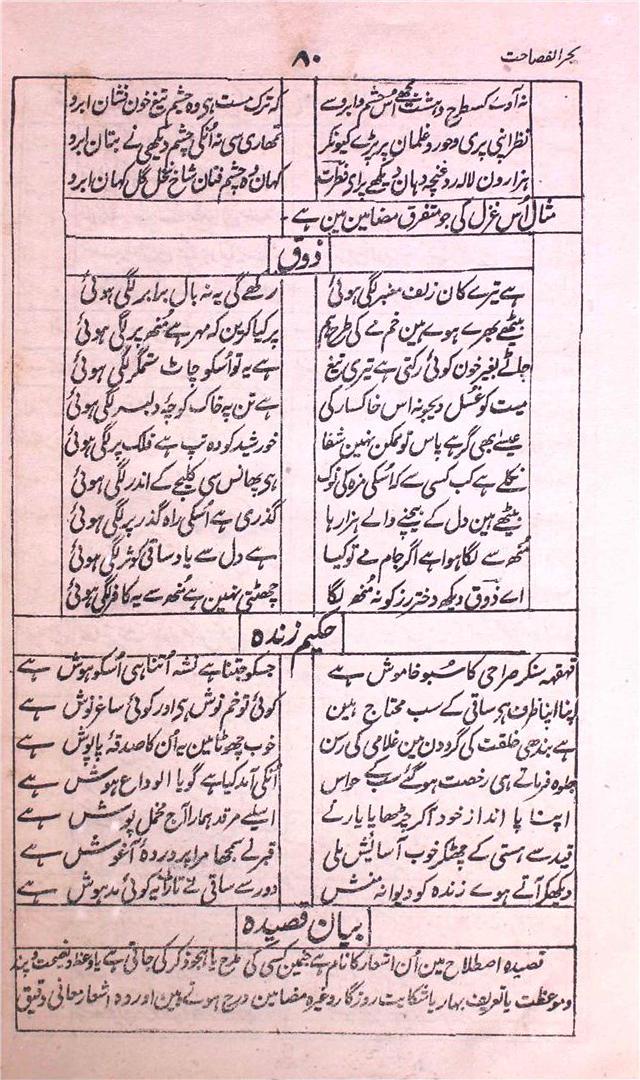 بحر الفصاحت
۸۰
نہ آوے کسطرح دہشت مجھے اُس چشم و ابرو سے کہ ترک مست ہی وہ چشم تیغ خون فشان ابرو
نظر اپنی پری و حور و غلمان پر پڑے کیونکر تمھاری سی نہ اُنکی چشم دیکھی نے بتان ابرو
ہزارون لالہ رو غنچہ دہان دیکھے پر ای فطرت کہان وہ چشم فتان شاخ نخل گل کہان ابرو
مثال اُس غزل کی جو متفرق مضامین مین ہے۔
ذوق
ہے تیرے کان زلف معنبر لگی ہوئی رکھے گی یہ نہ بال برابر لگی ہوئی
بیٹھے بھرے ہوے ہین خم مے کی طرح ہم پر کیا کرین کہ مہر ہے مُنھ پر لگی ہوئی
چاٹے بغیر خون کوئی رکتی ہے تیری تیغ ہے یہ تو اُسکو چاٹ ستمگر لگی ہوئی
میت کو غسل دیجو نہ اس خاکسار کی ہے تن پہ خاک کوچۂ دلبر لگی ہوئی
عیسے بھی گر ہے پاس تو ممکن نہین شفا خورشید کو وہ تپ ہے فلک پر لگی ہوئی
نکلے ہے کب کسی سے کہ اُسکی مژہ کی نوک ہی پھانس سی کلیجے کے اندر لگی ہوئی
بیٹھے ہین دل کے بیچنے والے ہزارہا گذری ہے اُسکی راہ گذر پر لگی ہوئی
مُنھ سے لگا ہوا ہے اگر جام مے تو کیا ہے دل سے یاد ساقی کوثر لگی ہوئی
اے ذوق دیکھ دختر رز کو نہ مُنھ لگا چھٹتی نہین ہے مُنھ سے یہ کافر لگی ہوئی
حکیم زندہ
قہقہہ سنکر صراحی کا سُبو خاموش ہے جسکو جتنا ہے نشہ اُتنا ہی اُسکو ہوش ہے
اپنا اپنا ظرف ہی ساقی کے سب محتاج ہین کوئی تو خم نوش ہی اور کوئی ساغر نوش ہے
ہے بندھی خلقت کی گردن مین غلامی کی رسن خوب چھوٹا مین یہ اُن کا صدقۂ پاپوش ہے
جلوہ فرماتے ہی رخصت ہوگئے سب کے حواس اُنکی آمد کیا ہے گویا الوداع ہوش ہے
اپنا پا انداز خود آکر چڑھایا یار نے اسیلے مرقد ہمارا آج مخمل پوش ہے
قید سے ہستی کے چھٹکر خوب آسائیش ملی قبر نے سمجھا مرا پروردۂ آغوش ہے
دیکھکر آتے ہوے زندہ کو دیوانہ منش دور سے ساقی نے تاڑا یہ کوئی مدہوش ہے
بیان قصیدہ
قصیدہ اصطلاح مین اُن اشعار کا نام ہے جنمین کسی کی مدح یا ہجو ذکر کی جاتی ہے یا وعظ و نصیحت و پند
و موعظت یا تعریف بہار یا شکایت روزگار وغیرہ مضامین درج ہوتے ہین اور وہ اشعار معانی دقیق